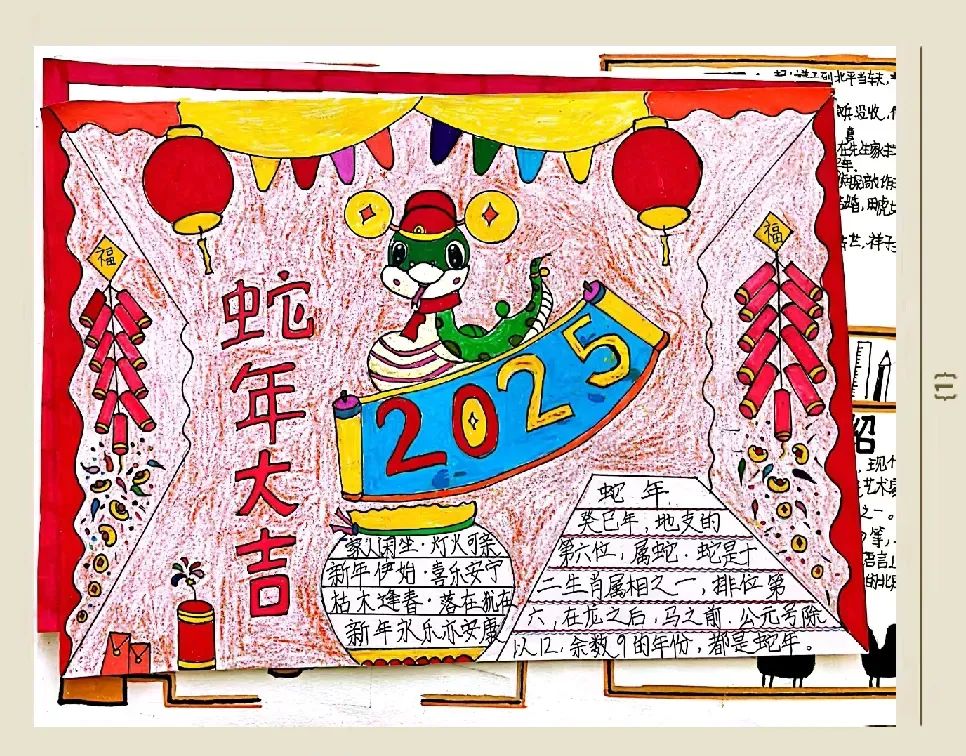 福
福
蛇年大吉
2025
家人闲坐·灯火可亲
新年伊始·喜乐安宁
枯木逢春·落在
新年永乐亦安康
蛇年
癸巳年,地支的
第六位,属蛇.蛇是十
二生肖属相之一,排位第
六,在龙之后,马之前.公元号除
以12,余数9的年份,都是蛇年。
到北平当车夫,
没收,
祥子
绍
现代
艺术
之一。
等,
语言